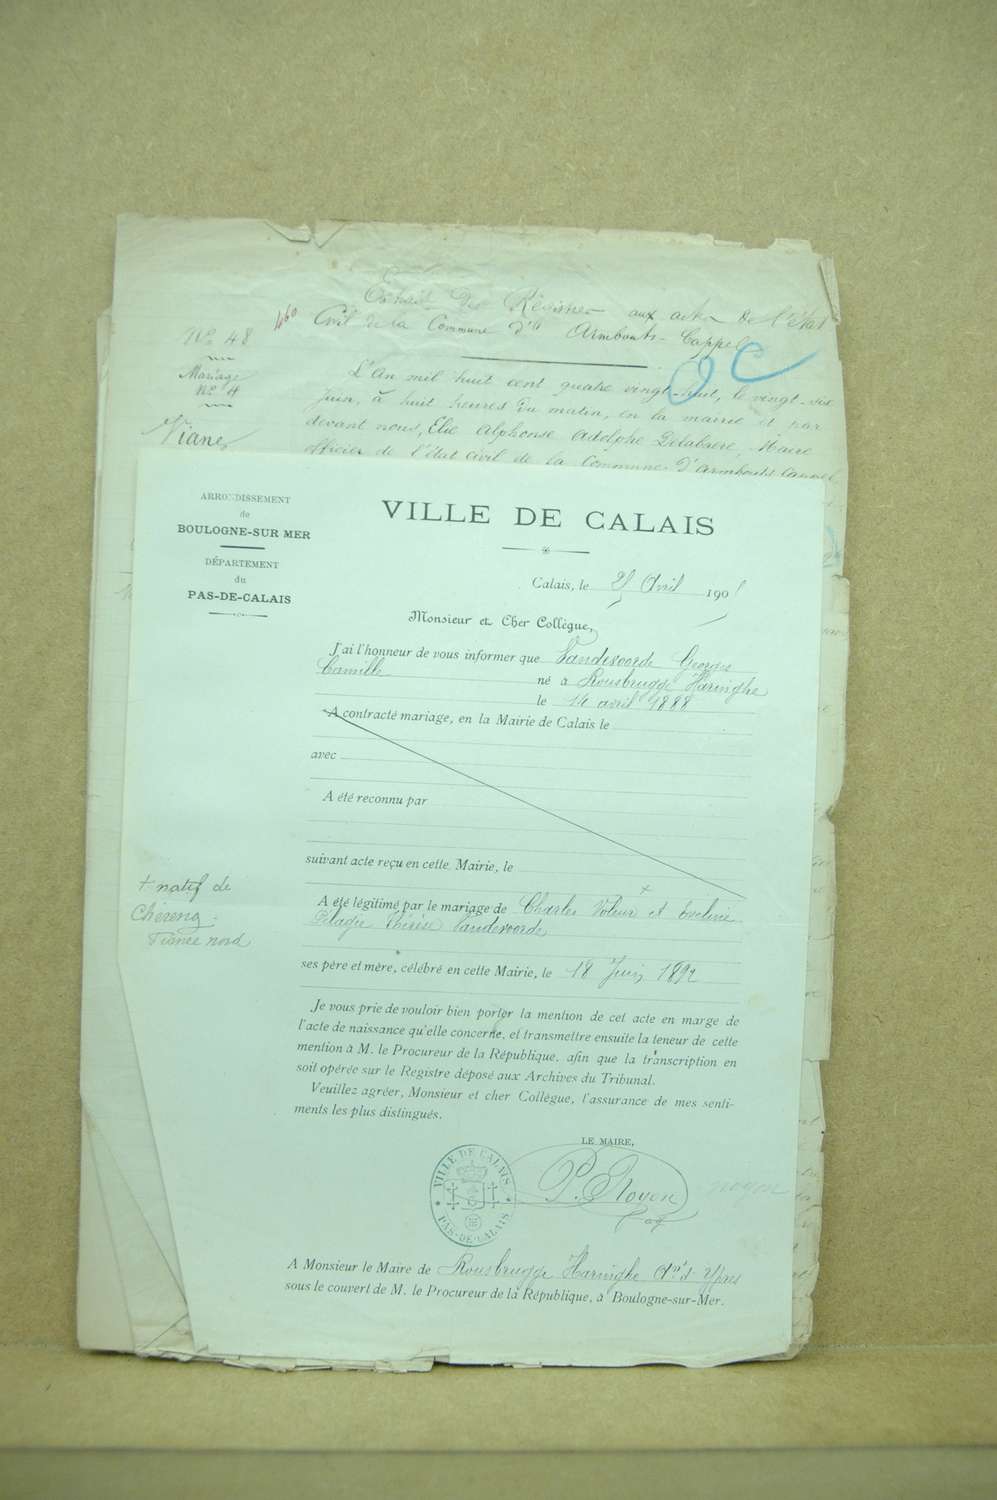 Extrait des Régistres aux actes de l'état
460
Civil de la Commune d'Armbouts-Cappel
N° 48
Mariage
N° 4
Viane
L'An mil huit cent quatre vingt-huit, le vingt-six
juin, à huit heures du matin, en la mairie et par
devant nous, Élie Alphonse Adolphe Delabaere, Maire
officier de l'état civil de la Commune d'Armbouts-Cappel
ARRONDISSEMENT
de
BOULOGNE-SUR MER
DÉPARTEMENT
du
PAS-DE-CALAIS
VILLE DE CALAIS
Calais, le Avril 190
Monsieur et Cher Collègue,
J'ai l'honneur de vous informer que Vandevoorde Georges
Camille né à Rousbrugge Haringhe
le 14 avril 1888
A contracté mariage, en la Mairie de Calais le
avec
A été reconnu par
suivant acte reçu en cette Mairie, le
+
A été légitimé par le mariage de Charles Voleur et Eveline
Pélagie Thérèse Vandevoorde
+ natif de
Chéreng
France nord
ses père et mère, célébré en cette Mairie, le 18 Juin 1892
Je vous prie de vouloir bien porter la mention de cet acte en marge de
l'acte de naissance qu'elle concerne, et transmettre ensuite la teneur de cette
mention à M. le Procureur de la République, afin que la transcription en
soit opérée sur le Registre déposé aux Archives du Tribunal.
Veuillez agréer, Monsieur et cher Collègue, l'assurance de mes senti-
ments les plus distingués.
LE MAIRE,
VILLE DE CALAIS
PAS-DE-CALAIS
P. Noyon
noyon
A Monsieur le Maire de Rousbrugge Haringhe Ypres
sous le couvert de M. le Procureur de la République, à Boulogne-sur-Mer.